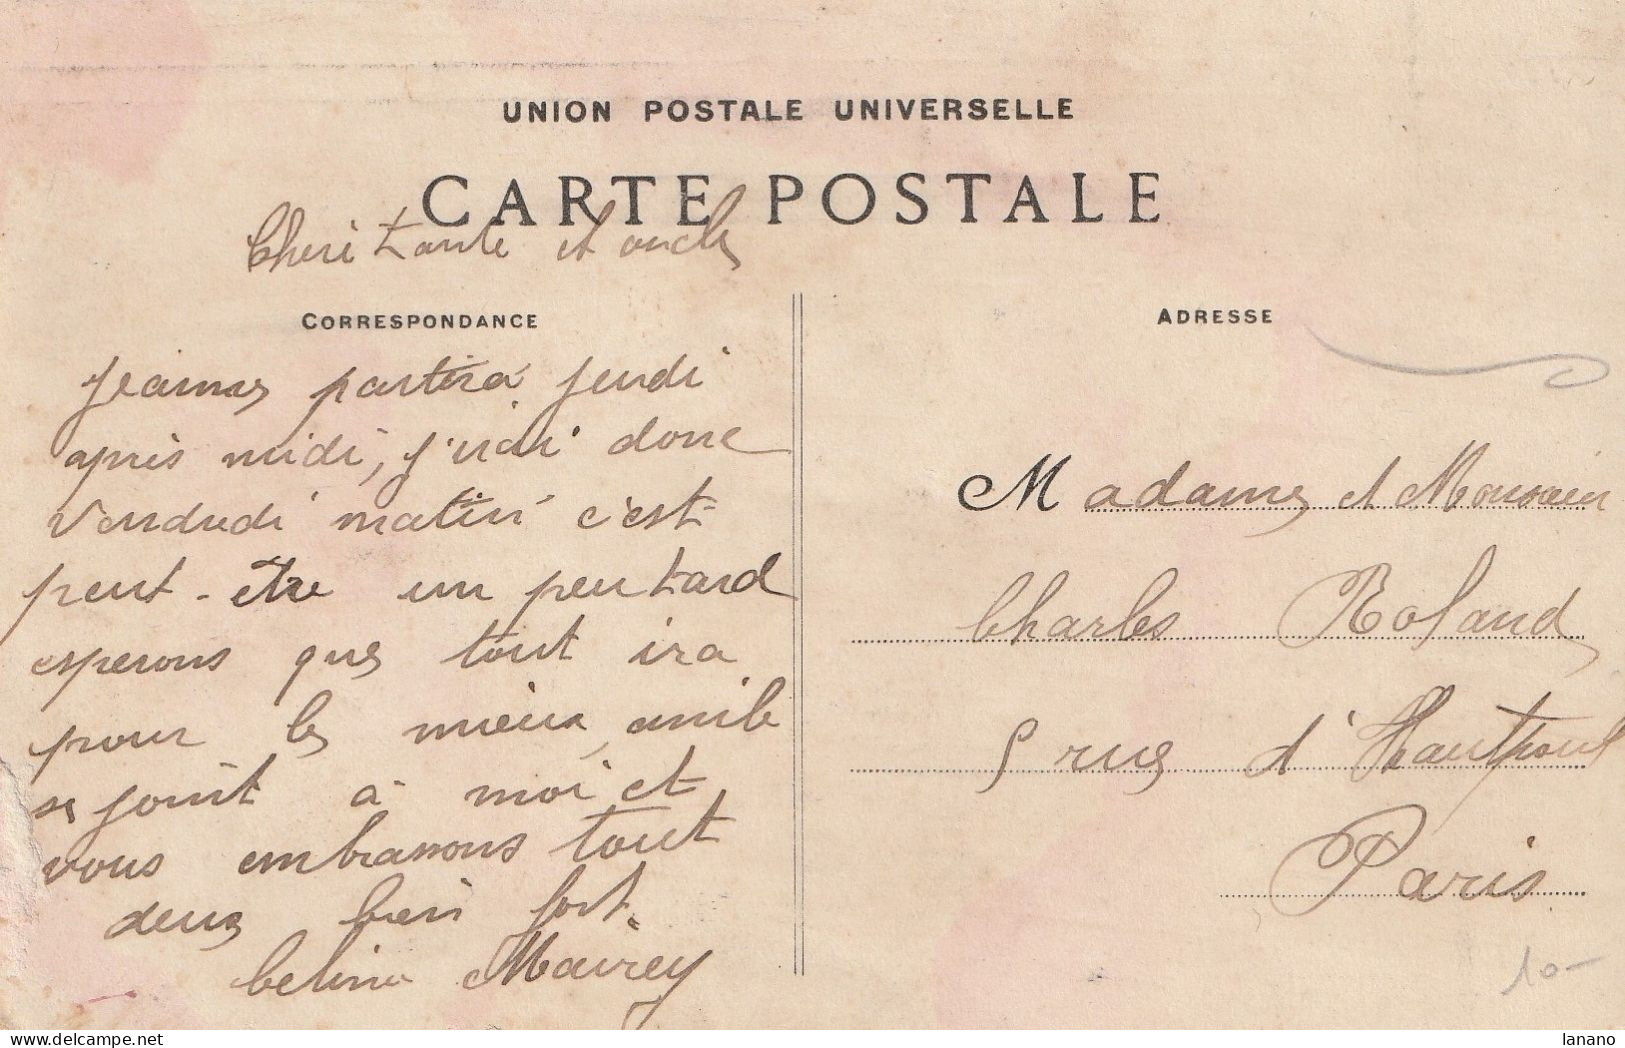 UNION POSTALE UNIVERSELLE
CARTE POSTALE
Cheri tante et oncle
CORRESPONDANCE
Jeanne partira jeudi
après midi, j'irai donc
vendredi matin c'est
peut-être un peu tard
esperons que tout ira
pour le mieux, emile
se joint à moi et
vous embrassons tout
deux bien fort.
Celina Mairey
ADRESSE
Madame et Monsieur
Charles Roland
5 rue d'Hautpoul
Paris
10-
delcampe.net
lanano